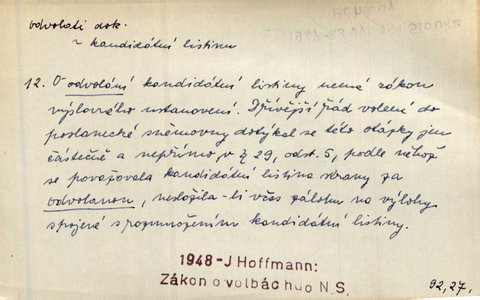 odvolati dok.
~ kandidátní listinu
12. O odvolání kandidátní listiny nemá zákon
výslovného ustanovení. Dřívější řád volení do
poslanecké sněmovny dotýkal se této otázky jen
částečně a nepřímo v § 29, odst. 5, podle něhož
se považovala kandidátní listina strany za
odvolanou, nesložila-li včas zálohu na výlohy
spojené s rozmnožením kandidátní listiny.
1948-J Hoffmann:
Zákon o volbách do N.S.
92, 27.